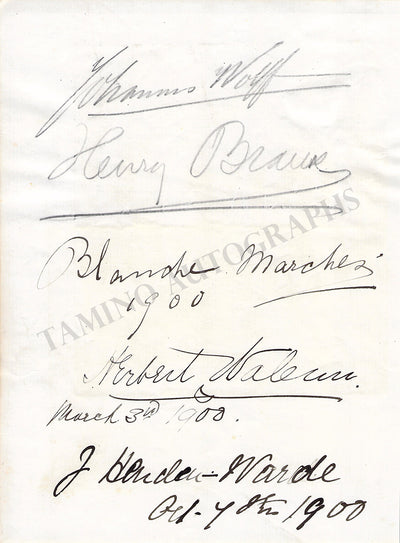 Johannes Wolff
Henry Braun
Blanche Marchesi
1900
TAMINO AUTOGRAPHS
Herbert Walenn.
March 3rd 1900.
J Henden-Warde
Oct- 7th 1900